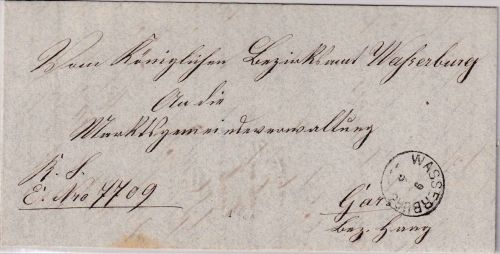 Vom Königlichen Bezirksamt Wasserburg
An die
Marktsgemeindeverwaltung
K. S.
E. Nro 7709
WASSERBURG
9
Gars
Bez. Haag